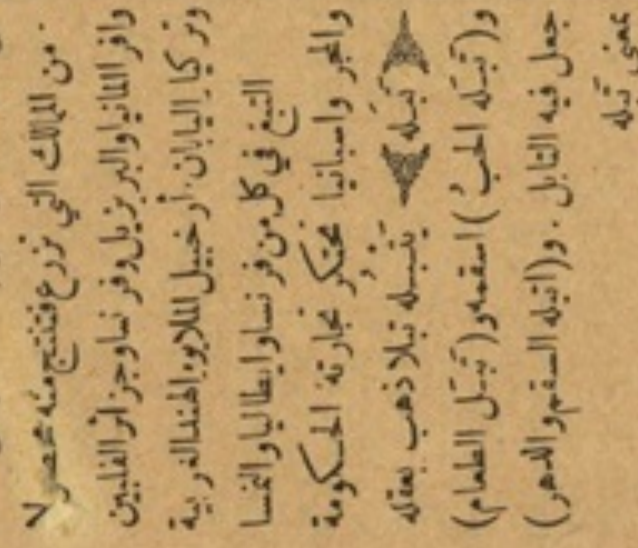 من الممالك التي تزرع فتنتج منه محصولا
وافرا المانيا والبرازيل وفرنسا وجزائر الفلبين
وتركيا اليابان. أرخبيل الملايو والهند الغربية
التبغ في كل من فرنسا وايطاليا والنمسا
والمجر واسبانيا محتكر تجارته الحكومة
﴿ تَبَله ﴾ يَتْبُله تبلا ذهب بعقله
و( تَبَله الحبُ ) اسقمه و( تَبَل الطعام )
جعل فيه التابل . و( اتبله السقم والدهر )
بمعنى تَبله